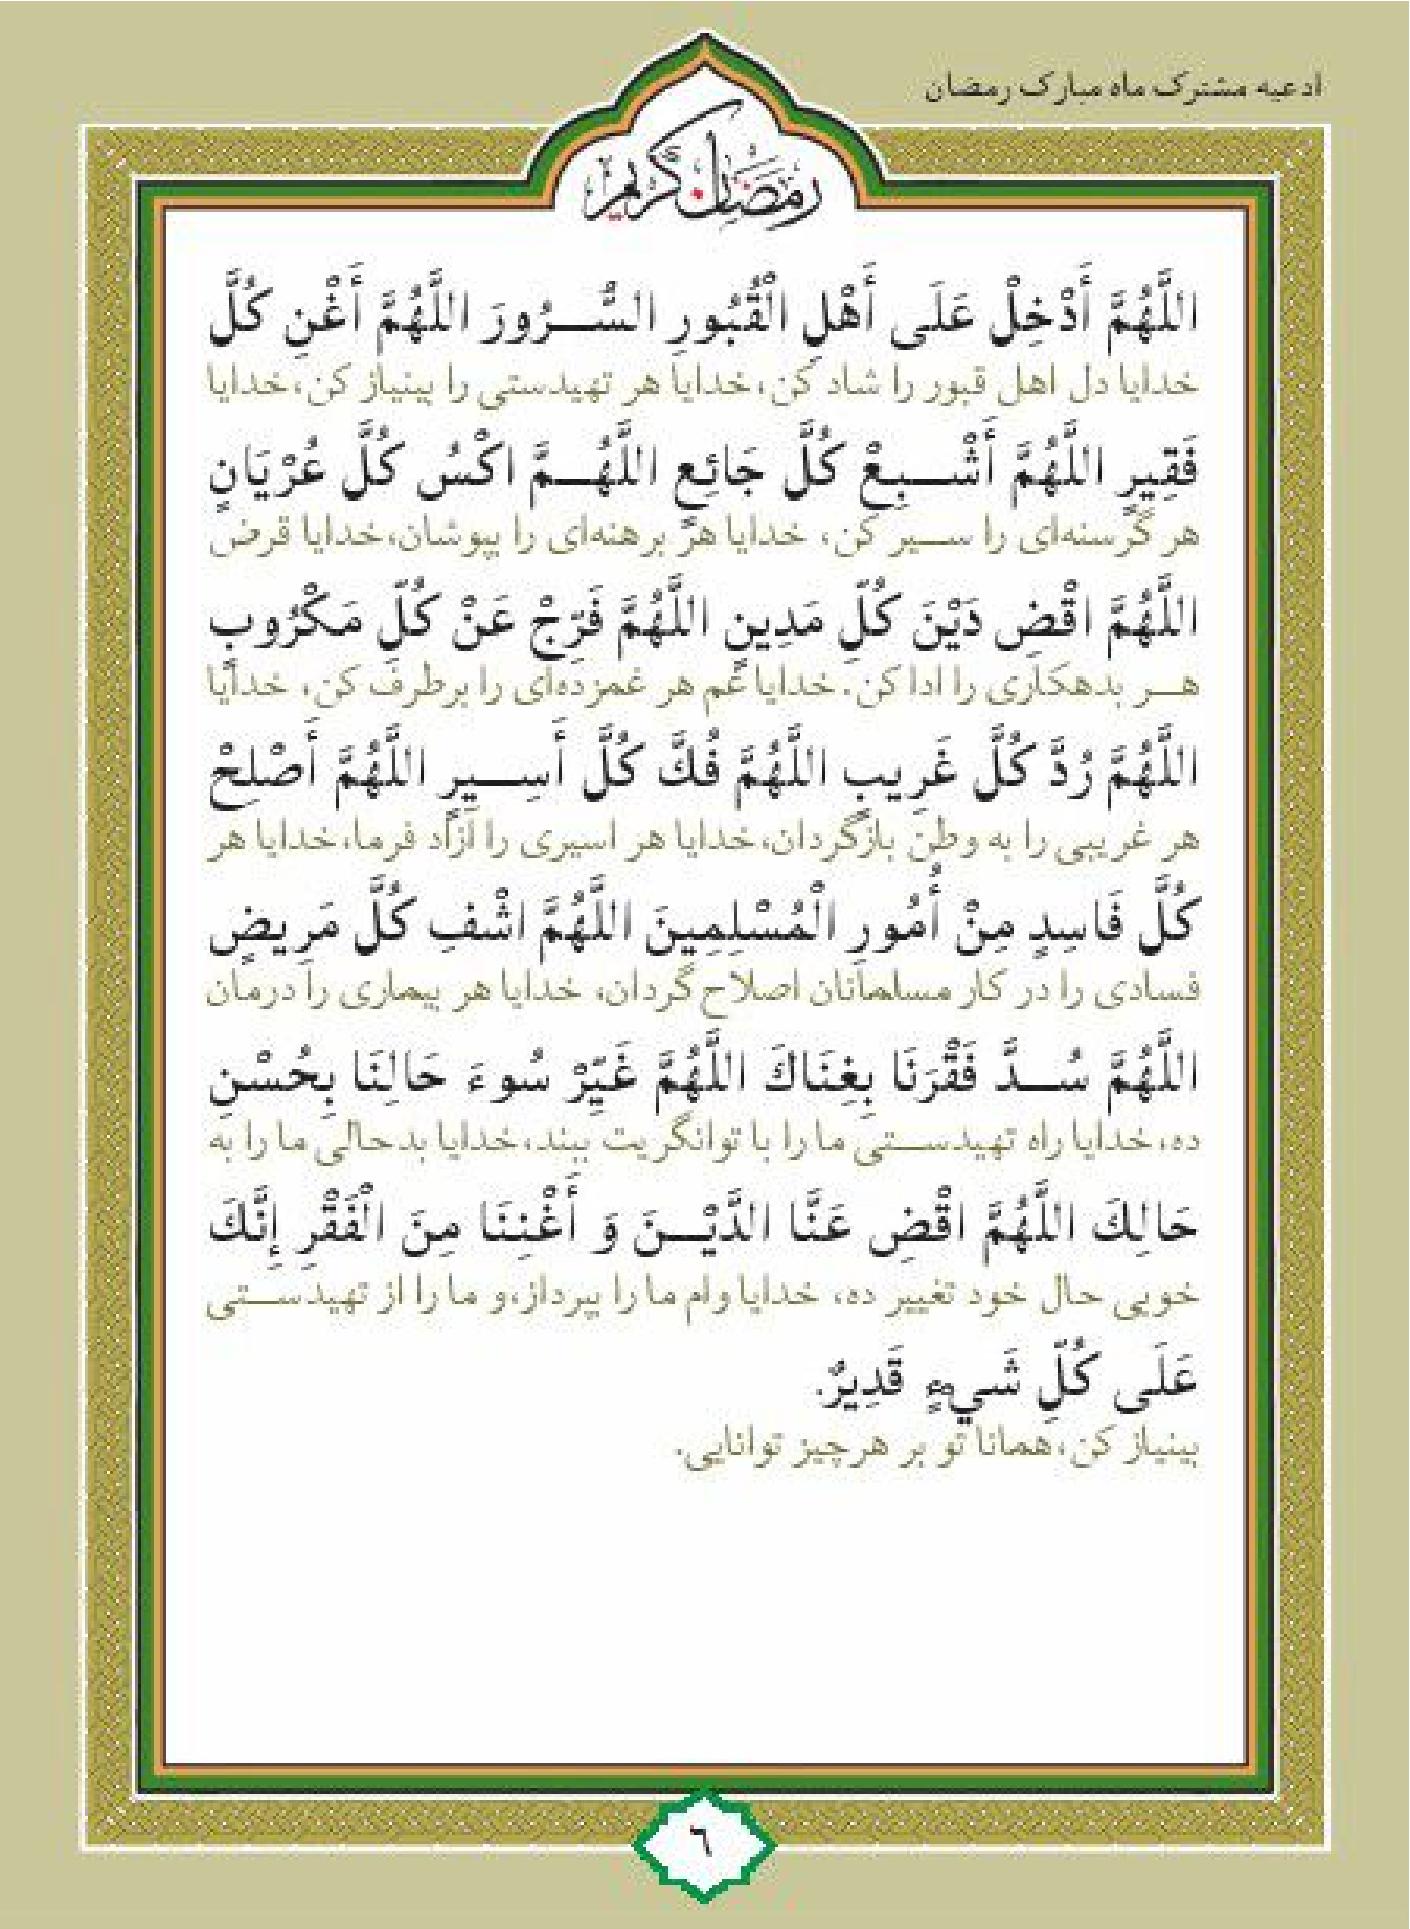 ادعیه مشترک ماه مبارک رمضان
رمضان کریم
اللَّهُمَّ أَدْخِلْ عَلَى أَهْلِ الْقُبُورِ السُّـرُورَ اللَّهُمَّ أَغْنِ كُلَّ
خدایا دل اهل قبور را شاد کن،خدایا هر تهیدستی را بینیاز کن،خدایا
فَقِيرٍ اللَّهُمَّ أَشْـبِعْ كُلَّ جَائِعٍ اللَّهُـمَّ اكْسُ كُلَّ عُرْيَانٍ
هر گرسنه‌ای را سـیر کن، خدایا هر برهنه‌ای را بپوشان،خدایا قرض
اللَّهُمَّ اقْضِ دَيْنَ كُلِّ مَدِينٍ اللَّهُمَّ فَرِّجْ عَنْ كُلِّ مَكْرُوبٍ
هـر بدهکاری را ادا کن. خدایا غم هر غمزده‌ای را برطرف کن، خدایا
اللَّهُمَّ رُدَّ كُلَّ غَرِيبٍ اللَّهُمَّ فُكَّ كُلَّ أَسِـيرٍ اللَّهُمَّ أَصْلِحْ
هر غریبی را به وطن بازگردان،خدایا هر اسیری را آزاد فرما،خدایا هر
كُلَّ فَاسِدٍ مِنْ أُمُورِ الْمُسْلِمِينَ اللَّهُمَّ اشْفِ كُلَّ مَرِيضٍ
فسادی را در کار مسلمانان اصلاح گردان، خدایا هر بیماری را درمان
اللَّهُمَّ سُـدَّ فَقْرَنَا بِغِنَاكَ اللَّهُمَّ غَيِّرْ سُوءَ حَالِنَا بِحُسْنِ
ده،خدایا راه تهیدسـتی ما را با توانگریت ببند،خدایا بدحالی ما را به
حَالِكَ اللَّهُمَّ اقْضِ عَنَّا الدَّيْـنَ وَ أَغْنِنَا مِنَ الْفَقْرِ إِنَّكَ
خوبی حال خود تغییر ده، خدایا وام ما را بپرداز،و ما را از تهیدسـتی
عَلَى كُلِّ شَيْءٍ قَدِيرٌ.
بینیاز کن،همانا تو بر هرچیز توانایی.
٦